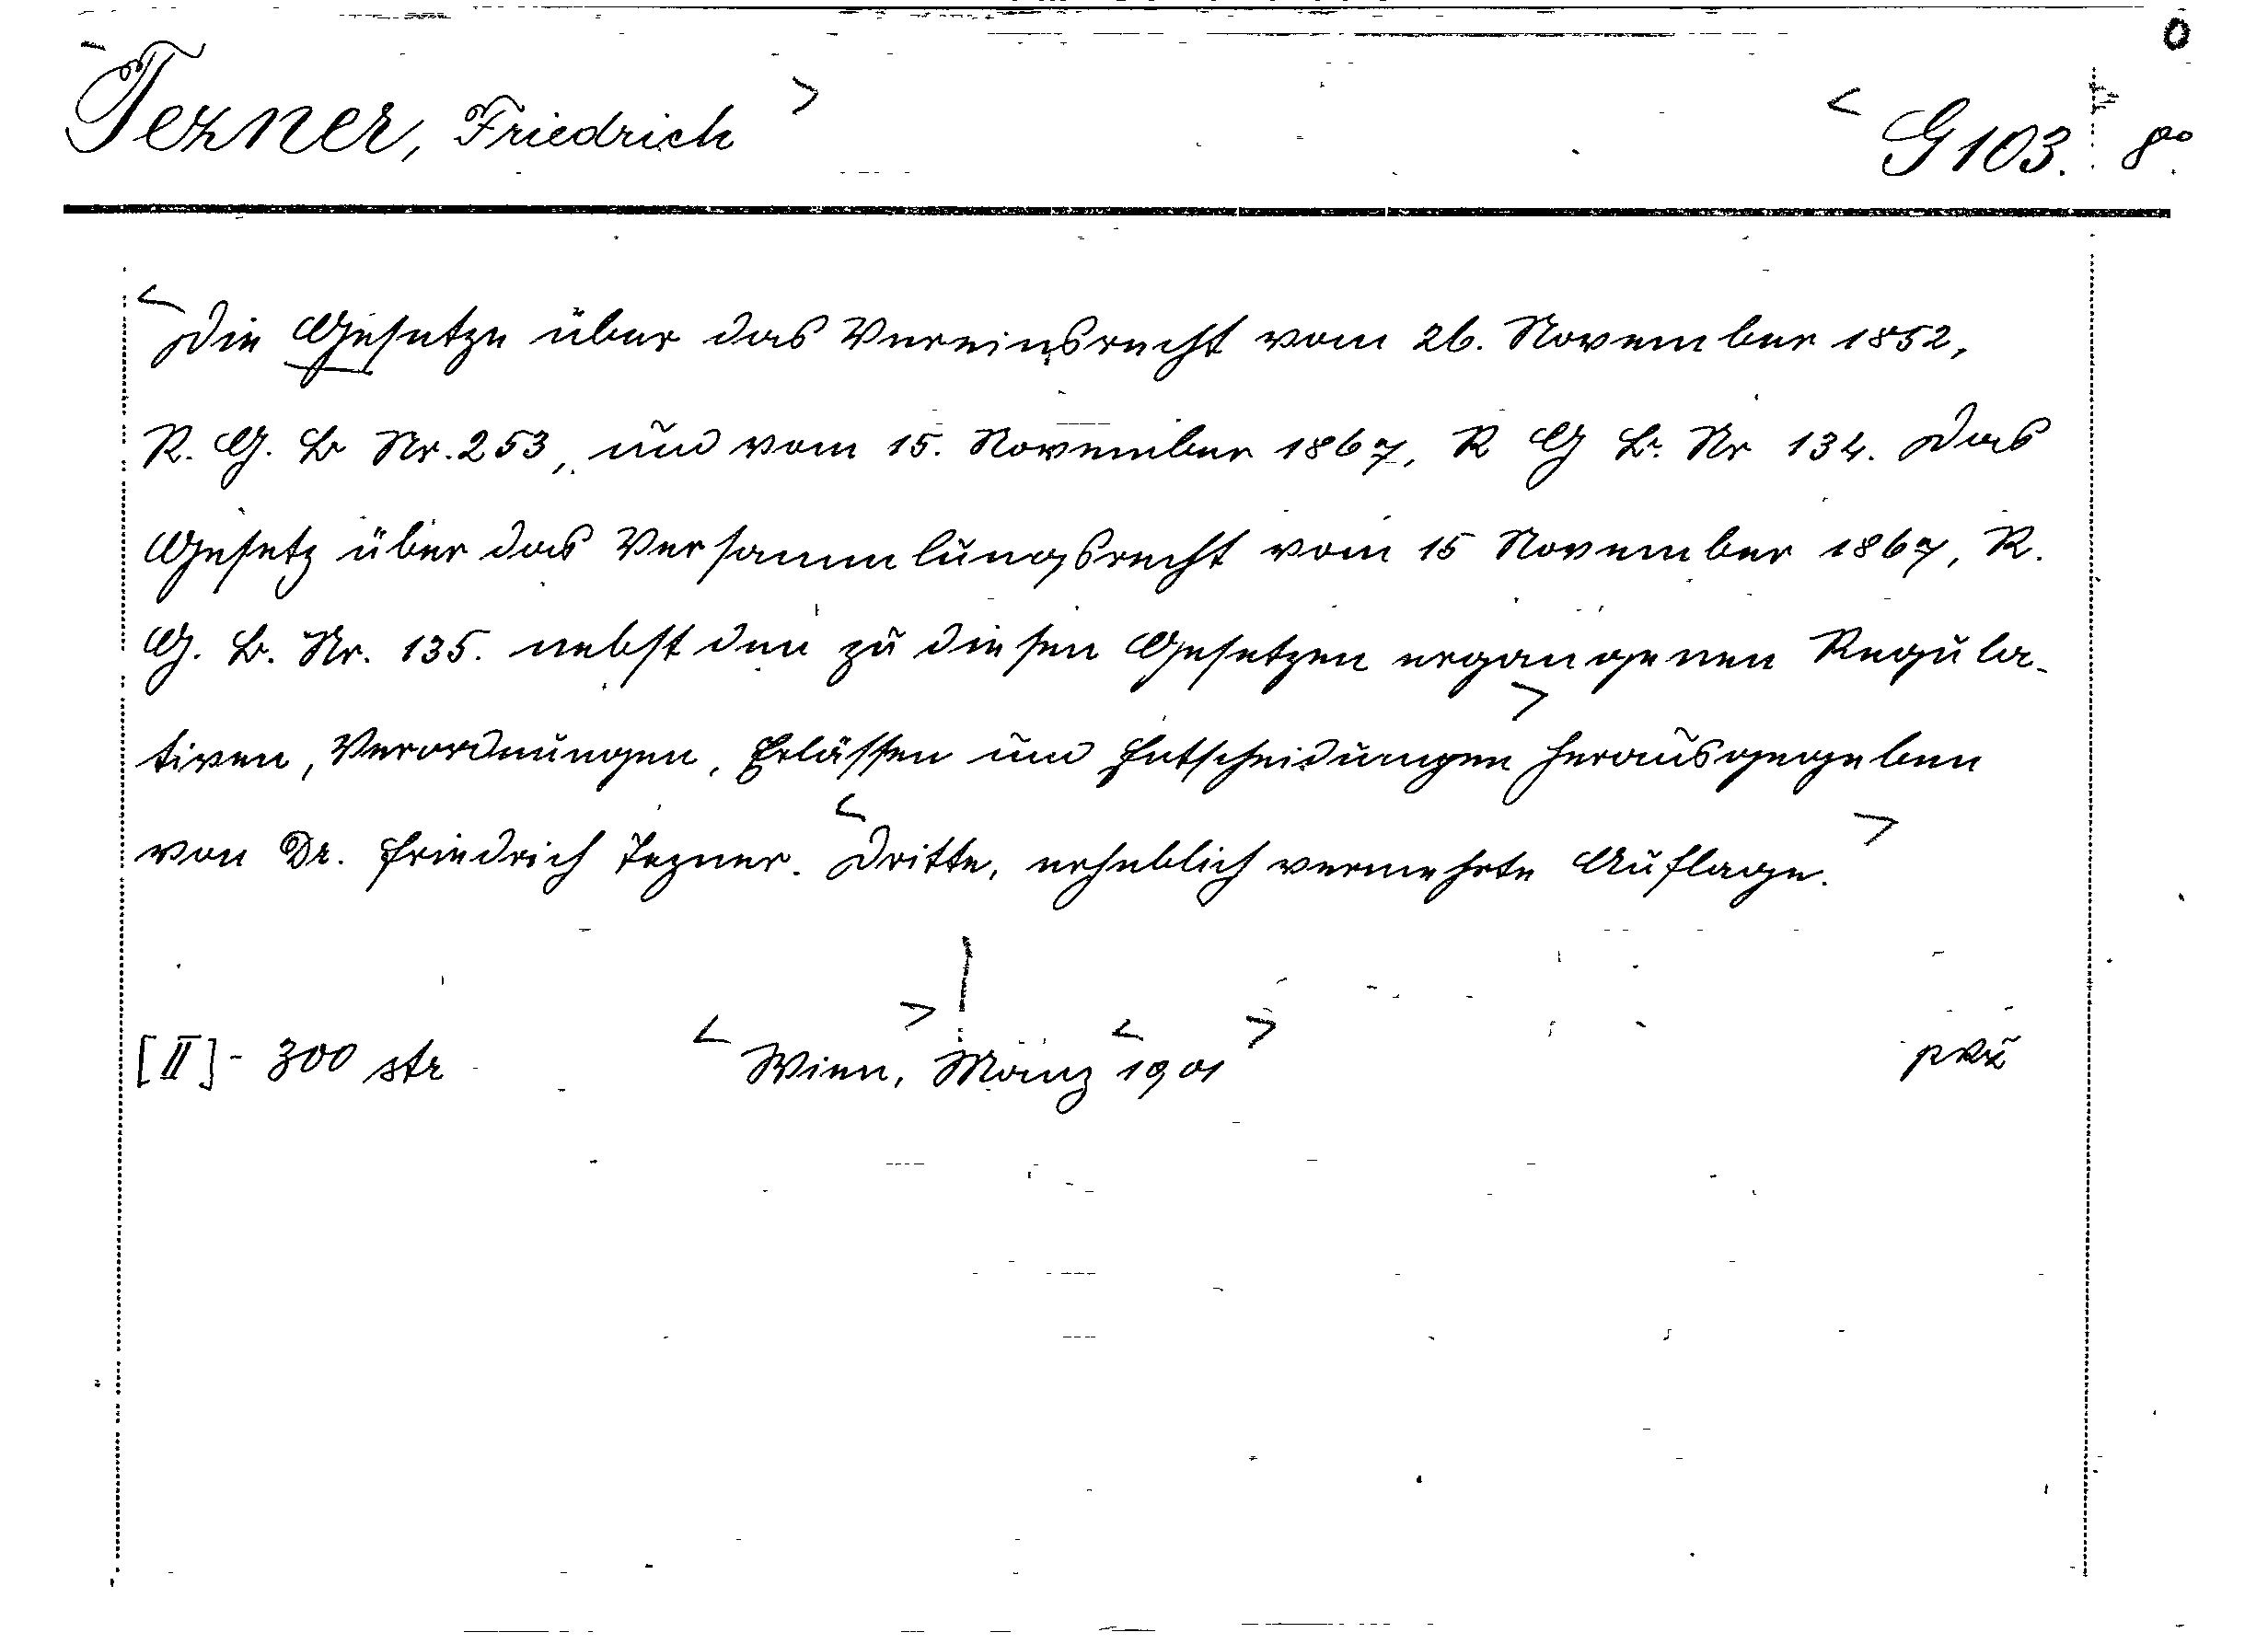 Tezner, Friedrich G 103. 8°
Die Gesetze über das Vereinsrecht vom 26. November 1852,
R. G. B Nr. 253, und vom 15. November 1867, R G B. Nr 134. Das
Gesetz über das Versammlungsrecht vom 15 November 1867, R.
G. B. Nr. 135. nebst den zu diesen Gesetzen ergangenen Regula-
tiven, Verordnungen, Erlässen und Entscheidungen herausgegeben
von Dr. Friedrich Tezner. Dritte, erheblich vermehrte Auflage.
[II] - 300 str Wien, Manz 1901